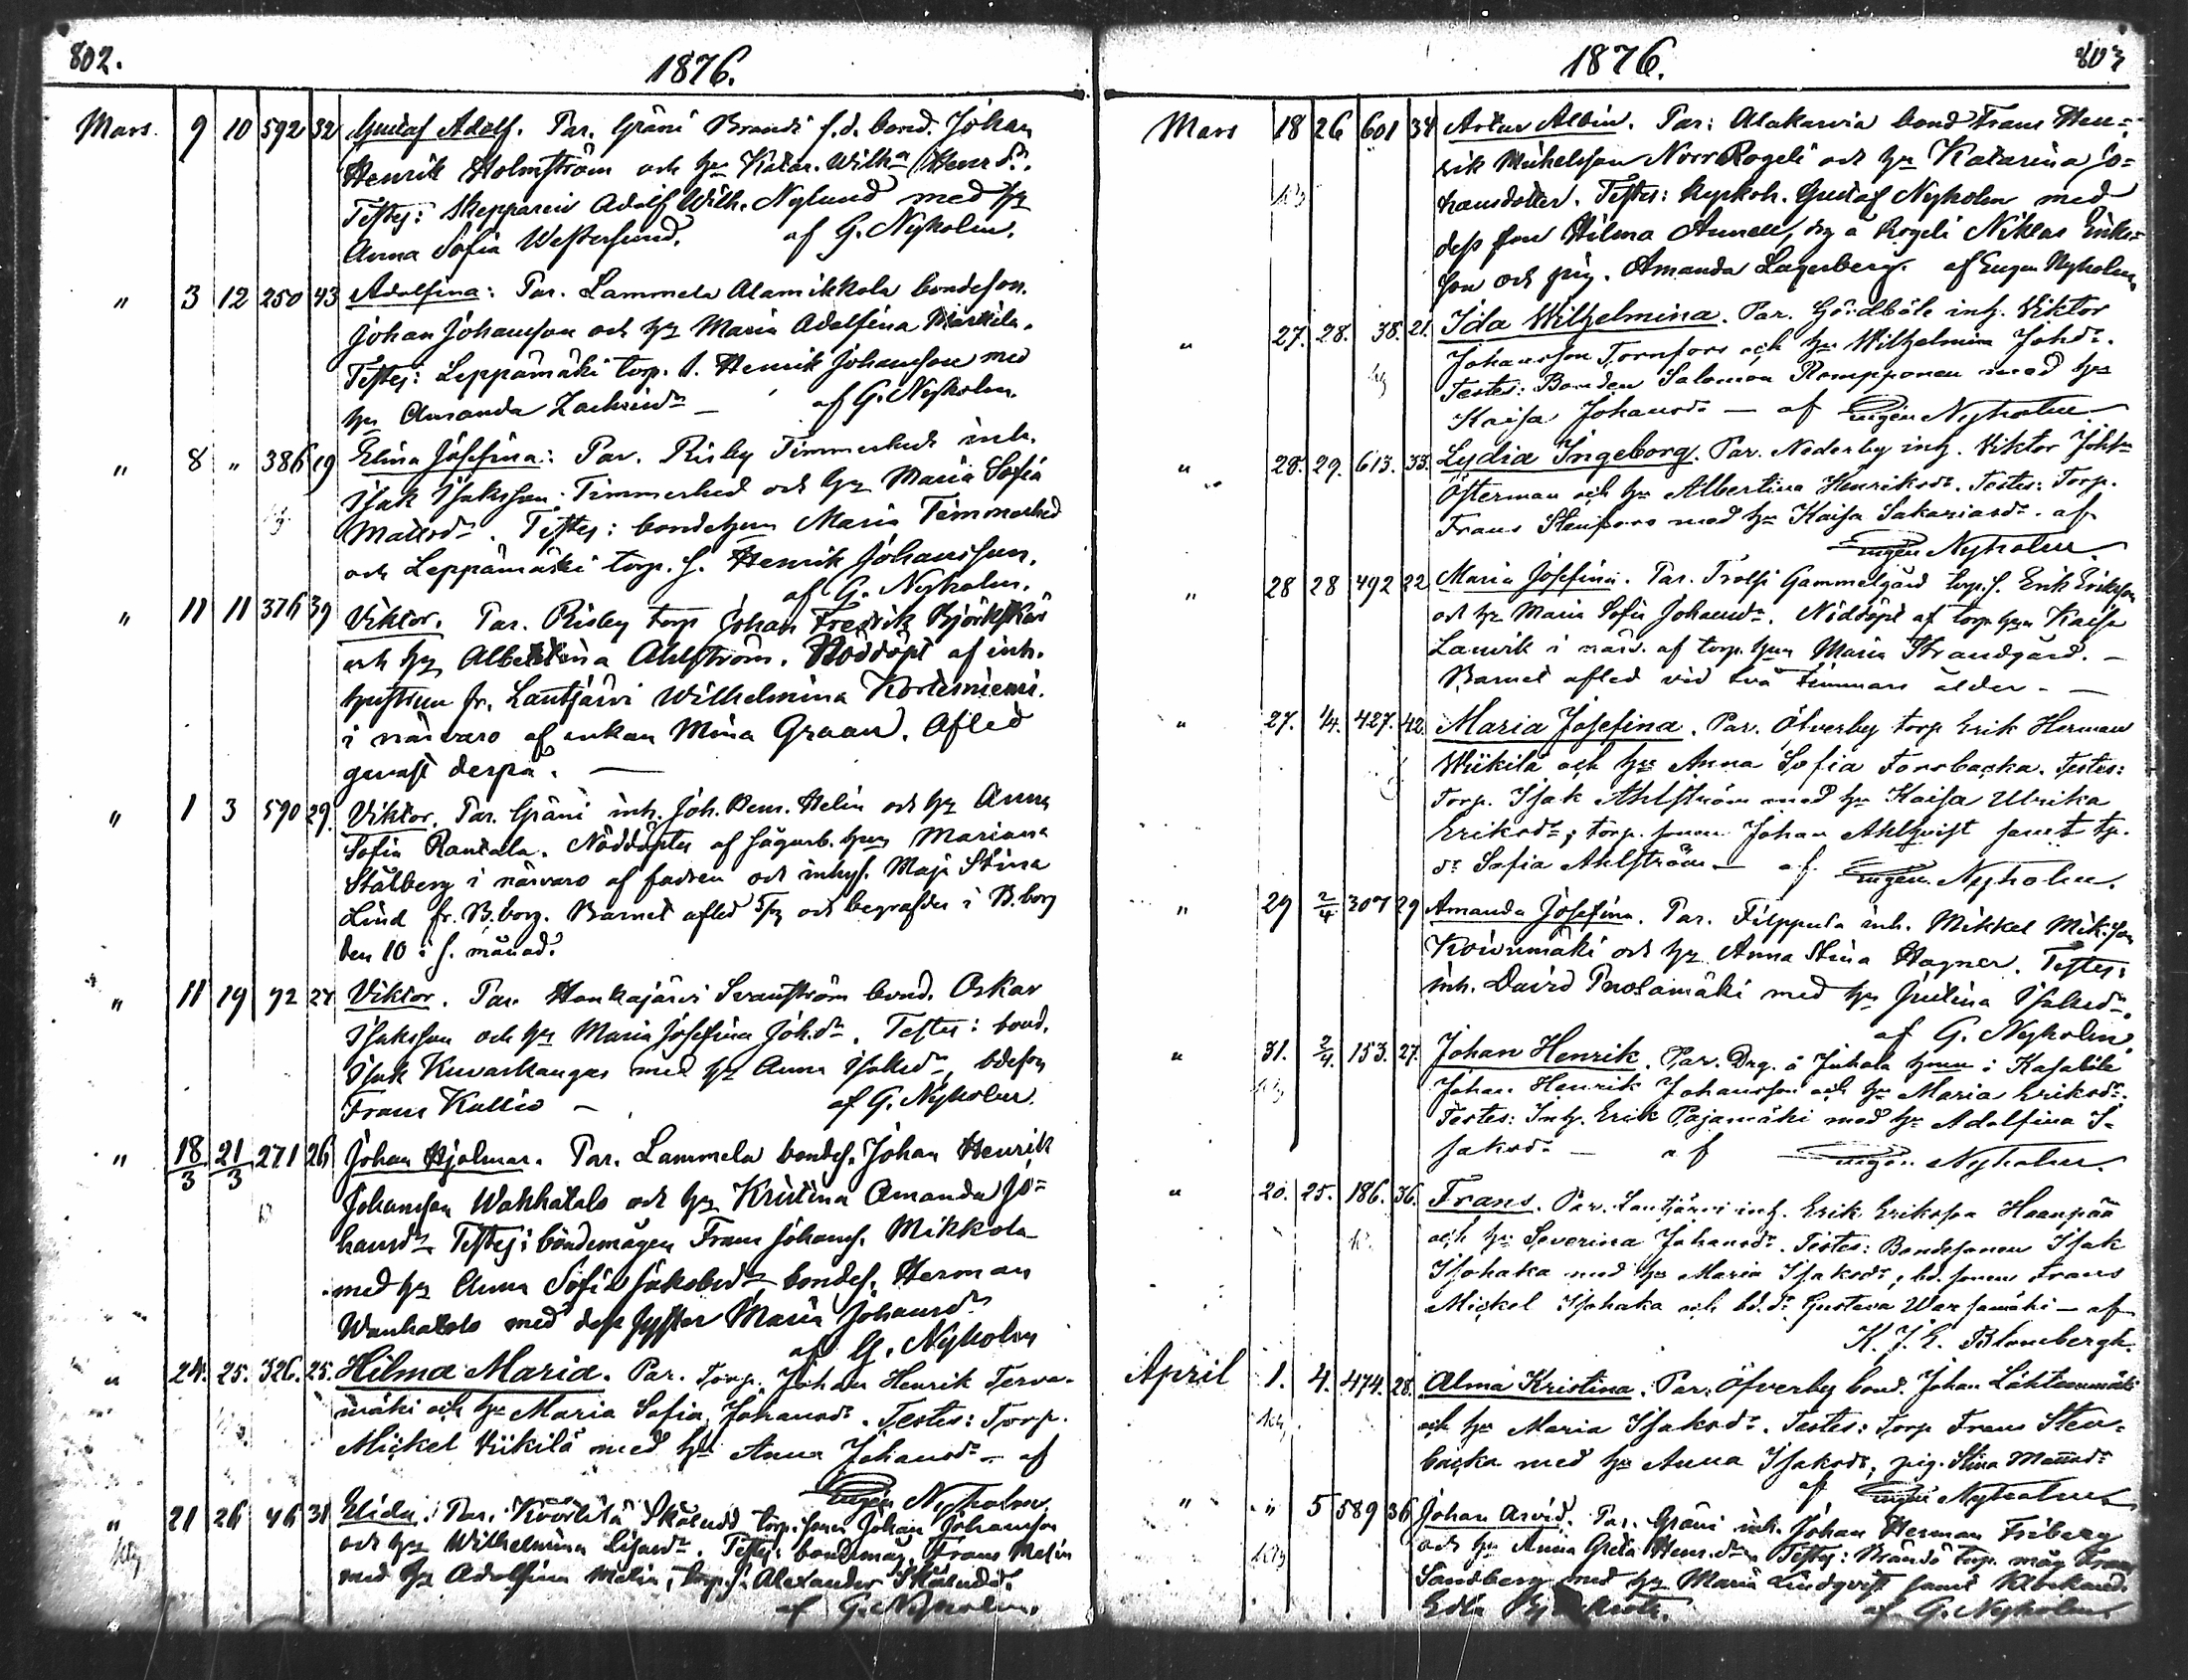 802.
1876.
Mars. 9 10 592 32 Gustaf Adolf. Par. Gräni Brandt f.d. bond. Johan
Henrik Holmström och hu Katar. Wilh:a Henrd:r.
Testes: Skepparen Adolf Wilh. Nylund med hu
Anna Sofia Westerlund. af G. Nyholm.
" 3 12 250 43 Adolfina: Par. Lammela Alamikkola bondeson.
Johan Johansson och hu Maria Adolfina
Testes: Leppämäki torp. s. Henrik Johansson med
hu Amanda Zachrisd:r — af G. Nyholm.
" 8 " 386 19 Elina Josefina: Par. Risby Timmerhed inh.
Isak Isaksson Timmerhed och hu Maria Sofia
Matsd:r. Testes: bondehun Maria Timmerhed
och Leppämäki torp. s. Henrik Johansson.
af G. Nyholm.
" 11 11 376 39 Viktor. Par. Risby torp Johan Fredrik Björkskär
och hu Albertina Ahlström. Nöddöpt af inh.
hustrun fr. Lautjärvi Wilhelmina Kortesniemi.
i närvaro af enkan Mina Graan. Afled
genast derpå. —
" 1 3 590 29. Viktor. Par. Gräni inh. Joh. Henr. Helin och hu Anna
Sofia Rantala. Nöddöptes af sågarb. hun Mariana
Stålberg i närvaro af fadren och inhys. Maja Stina
Lind fr. B.borg. Barnet afled 5/3 och begrafdes i B.borg
den 10 i s. månad.
" 11 19 92 24 Viktor. Par. Honkajärvi Svanström bond. Oskar
Isaksson och hu Maria Josefina Joh.d:r. Testes: bond.
Isak Kuvaskangas med hu Anna Isaksd:r, bdeson
Frans Kallio — af G. Nyholm.
" 18/3 21/3 271 26 Johan Hjalmar. Par. Lammela bondes. Johan Henrik
Johansson Wanhatalo och hu Kristina Amanda Jo=
hansd:r. Testes: bondemågen Frans Johans. Mikkola
med hu Anna Sofia Jakobsd:r, bondes. Herman
Wanhatalo med dess syster Maria Johansd:r
af G. Nyholm
" 24. 25. 326. 25. Hilma Maria. Par. Torp. Johan Henrik Terva-
mäki och hu Maria Sofia Johansd:r. Testes: Torp.
Mickel Viikilä med hu Anna Johansd:r — af
Eugen Nyholm
" 21 26 46 31 Elida. Par. Skåludd torp. sonen Johan Johansson
och hu Wilhelmina. Testes: bondemåg. Frans Melin
med hu Adolfina Melin, torp. s. Alexander Skåludd.
af G. Nyholm.
1876.
803
Mars 18 26 601 34 Artur Albin. Par: Alakarvia bond Frans Hen=
rik Mickelsson Norr Rogeli och hu Katarina Jo=
hansdotter. Testes: kyrkoh. Gustaf Nyholm med
dess fru Hilma Aurore, drg å Rogeli Niklas Eriks=
son och pig. Amanda Lagerberg. af Eugen Nyholm
" 27. 28. 38. 21. Ida Wilhelmina. Par. Gårdböle inh. Viktor
Johansson Tornfors och hu Wilhelmina Johd:r.
Testes: Bonden Salomon Rompponen med hu
Kaisa Johansd:r — af Eugen Nyholm
" 28. 29. 613. 33. Lydia Ingeborg. Par. Nederby inh. Viktor Joh:n
Österman och hu Albertina Henriksd:r. Testes: Torp.
Frans Stenfors med hu Kaisa Sakariasd:r. af
Eugen Nyholm.
" 28 28 492 22 Maria Josefina. Par. Trolsi Gammelgård torp. s. Erik Eriksson
och hu Maria Sofia Johansd:r. Nöddöpt af torp. hun Kaisa
Lanvik i närv. af torp. hun Maria Strandgård. —
Barnet afled vid två timmars ålder. —
" 27. 1/4. 427. 42. Maria Josefina. Par. Öfverby torp Erik Herman
Wiikilä och hu Anna Sofia Forsbacka. Testes:
Torp. Isak Ahlström med hu Kaisa Ulrika
Eriksd:r; torp. sonen Johan Ahlqvist samt tp.
d:r Sofia Ahlström — af. Eugen Nyholm.
" 29 2/4 307 29 Amanda Josefina. Par. Filppula inh. Mikkel Mik.son
Koivumäki och hu Anna Stina Hagner. Testes:
inh. David Tuolamäki med hu Justina Isaksd:r.
af G. Nyholm.
" 31. 2/4. 153. 27. Johan Henrik. Par. Drg. å Juhola hemm i Kasaböle
Johan Henrik Johansson och hu Maria Eriksd:r.
Testes: Inh. Erik Pajamäki med hu Adolfina I-
saksd:r — af Eugen Nyholm.
" 20. 25. 186. 36. Frans. Par. Lautjärvi inh. Erik Eriksson Haanpää
och hu Severina Johansd:r. Testes: Bondesonen Isak
Isohaka med hu Maria Isaksd:r, bd. sonen Frans
Mickel Isohaka och bd.d:r Gustava Warsamäki — af
K. J. E. Blombergh.
April 1. 4. 474. 28. Alma Kristina. Par. Öfverby bond. Johan Lähteenmäki
och hu Maria Isaksd:r. Testes: Torp Frans Sten-
backa med hu Anna Isaksd:r, pig. Stina
af Eugen Nyholm
" " 5 589 36 Johan Arvid. Par. Gräni inh. Johan Herman Friberg
och hu Anna Greta Henr.d:r. Testes: Brändö torp. måg Frans
Sandberg med hu Maria Lindqvist samt
Edla
af G. Nyholm.